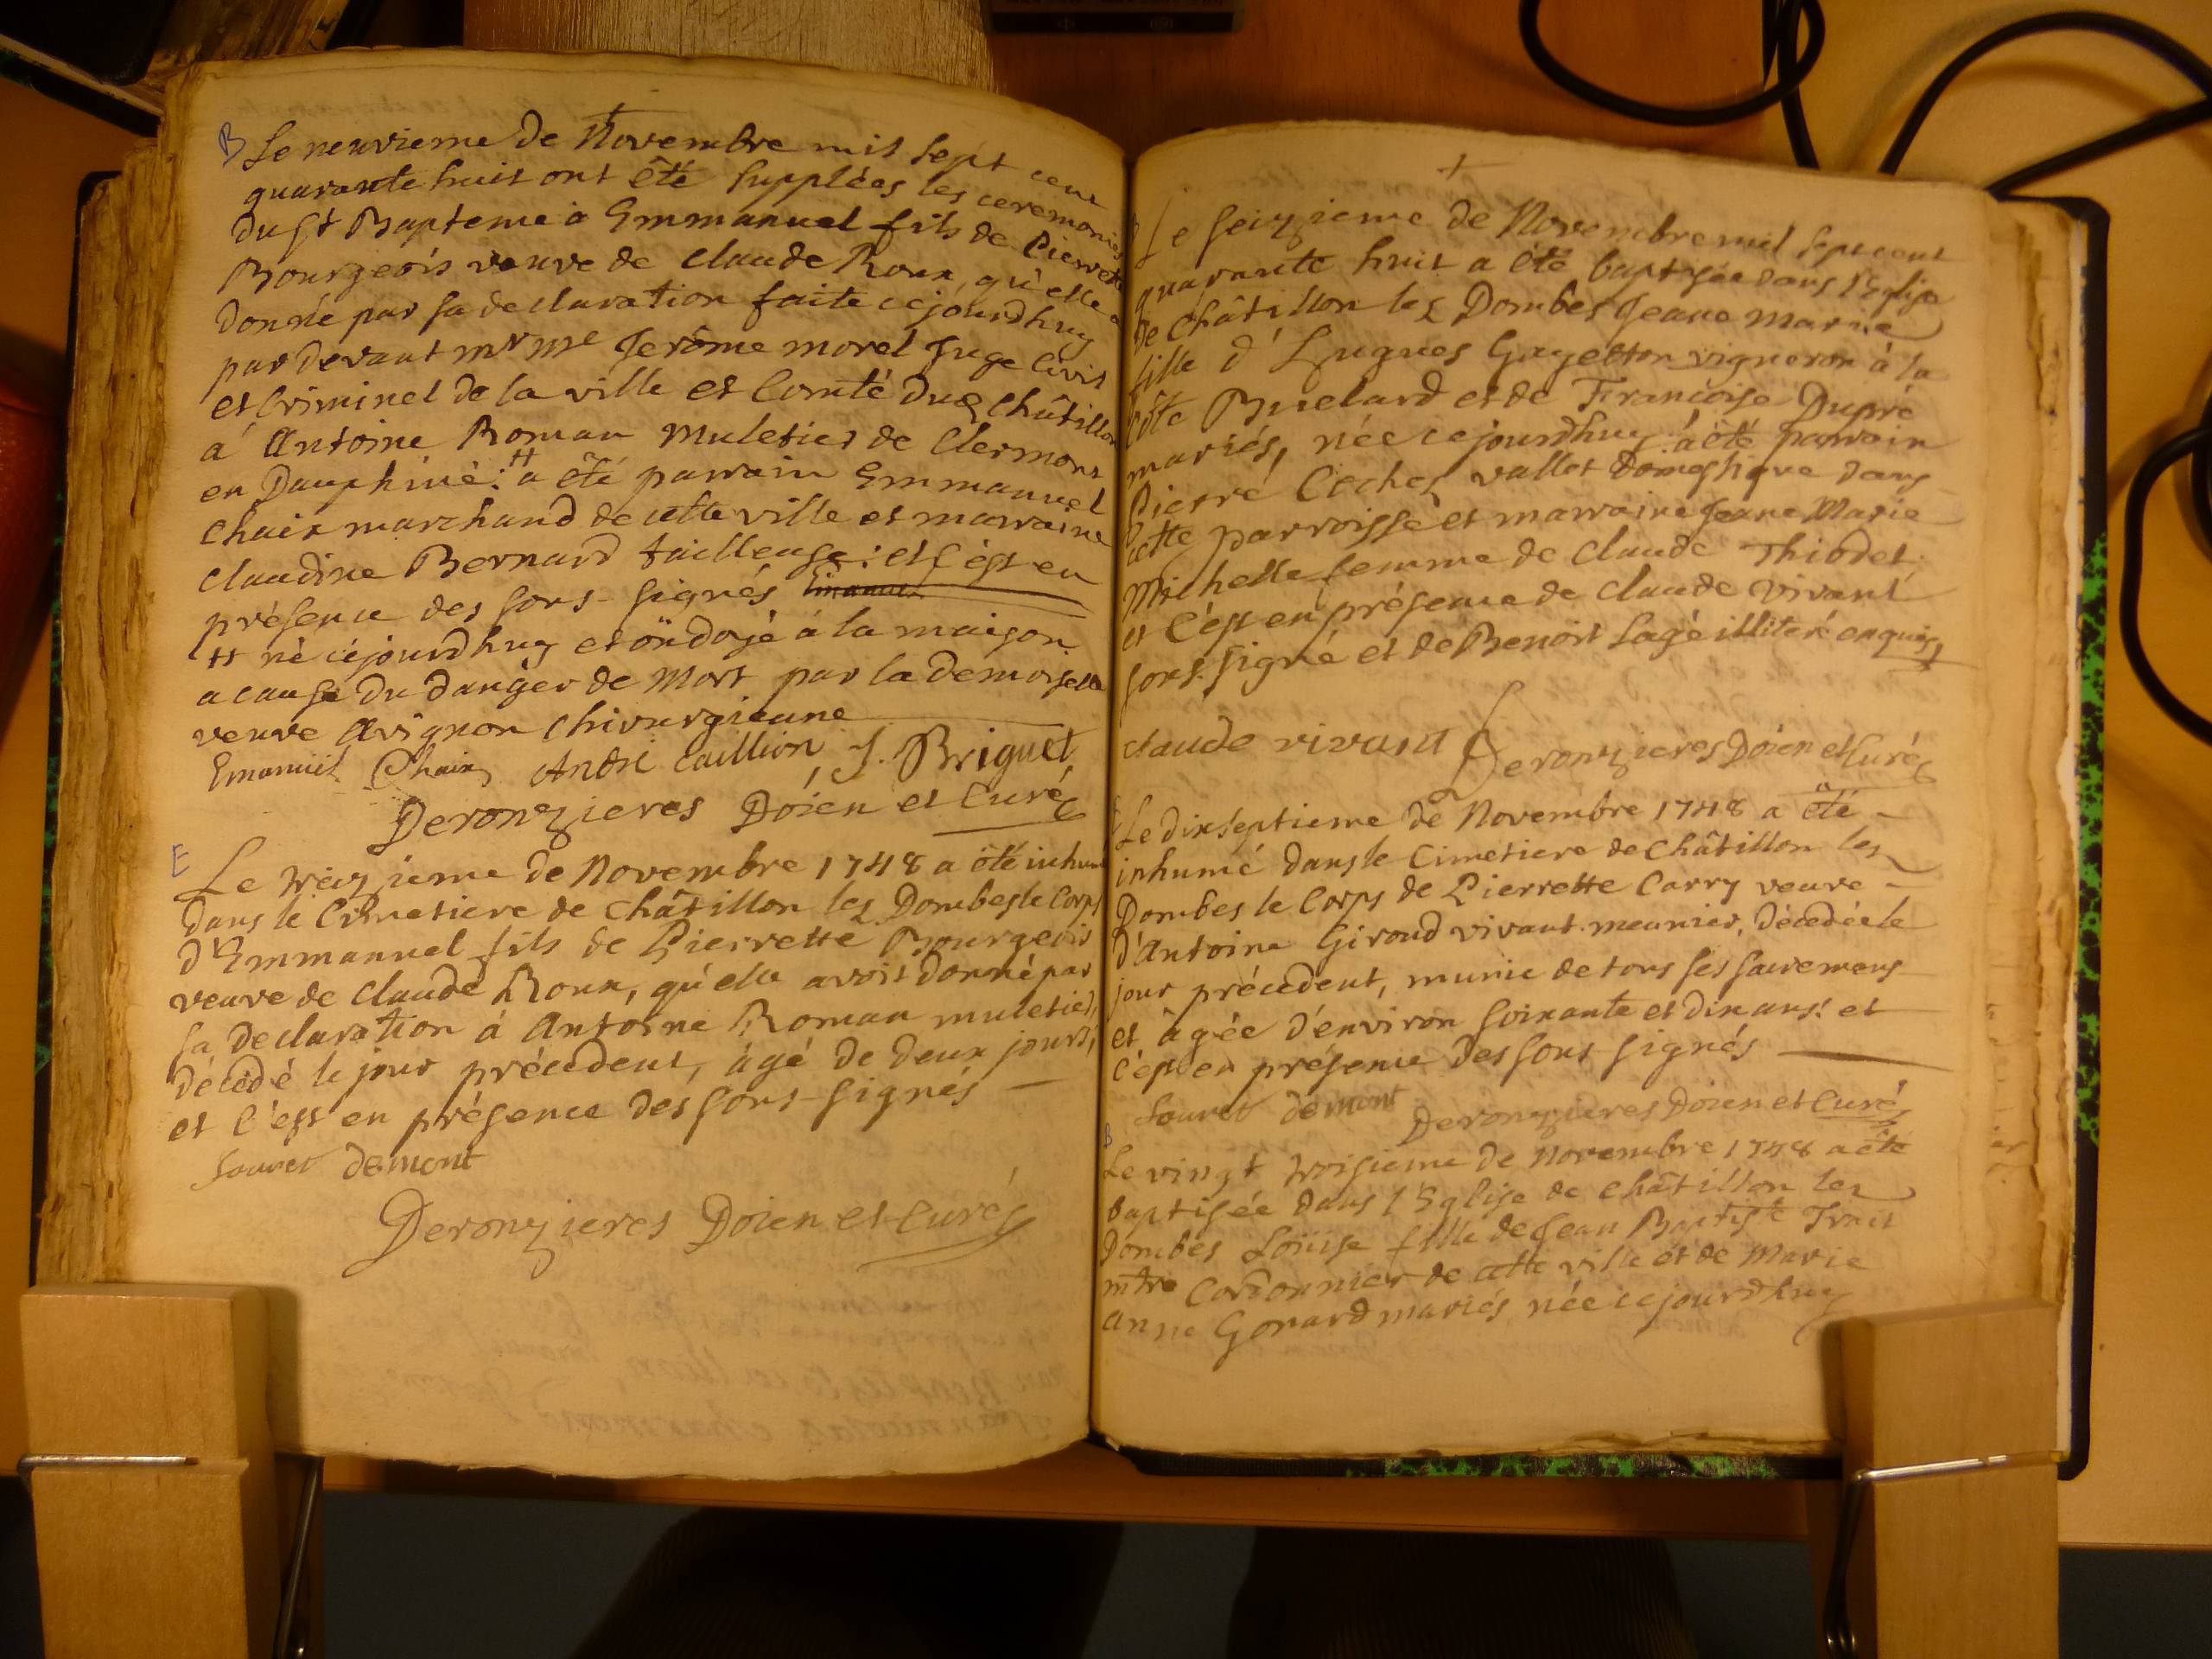 B Le neuvieme de Novembre mil sept cent
quarante huit ont été supplées les ceremonies
du St Bapteme à Emmanuel fils de Pierrette
Bourgeois veuve de Claude Roux, qu'elle a
donné par sa declaration faite cejourdhuy
par devant mr me Jerôme morel Juge Civil
et Criminel de la ville et Comté dud Châtillon
a' Antoine Roman muletier de Clermont
en Dauphiné: # a été parrain Emmanuel
Chaix marchand de cette ville et marraine
Claudine Bernard tailleuse: et c'est en
présence des sous-signés
# né cejourdhuy et ondoyé à la maison
a cause du danger de mort par la demoiselle
veuve Avignon chirurgienne
Emanuel Chaix André Caillion J. Briguet
Deronzieres Doien et Curé
E Le treizieme de Novembre 1748 a été inhumé
dans le Cimetiere de Châtillon les Dombes le Corps
d'Emmanuel fils de Pierrette Bourgeois
veuve de Claude Roux, qu'elle avoit donné par
sa declaration à Antoine Roman muletier,
décédé le jour précédent, âgé de deux jours,
et c'est en présence des sous-signés
Souvet demont
Deronzieres Doien et Curé
Le seizieme de Novembre mil sept cent
quarante huit a été baptisée dans l'Eglise
de Châtillon les Dombes Jeane Marie
fille d'Hugues Gayetton vigneron à la
Côte Buelard et de Françoise Dupré
mariés, née cejourdhuy: a été parrain
Pierre Coche vallet domestique dans
cette parroisse et marraine Jeane Marie
Michelle femme de Claude Thiodet
et c'est en présence de Claude Vivant
sous signé et de Benoit Sagé illiteré enquis,
claude vivant Deronzieres Doien et Curé
Le dixseptieme de Novembre 1748 a été
inhumé dans le Cimetiere de Châtillon les
Dombes le Corps de Pierrette Carry veuve
d'Antoine Giroud vivant meunier, décédée le
jour précédent, munie de tous ses sacremens
et âgée d'environ soixante et dix ans: et
c'est en présence des sous signés
Souvet demont Deronzieres Doien et Curé
B Le vingt troisieme de Novembre 1748 a été
baptisée dans l'Eglise de Châtillon les
Dombes Loüise fille de Jean Baptiste
mtre Cordonnier de cette ville et de Marie
anne Gonard mariés, née cejourdhuy